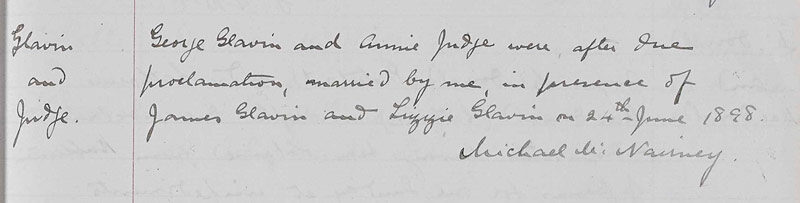 Glavin
and
Judge.
George Glavin and Annie Judge were, after due
proclamation, married by me, in presence of
James Glavin and Lizzie Glavin on 24th June 1898.
Michael Mc Nairney.